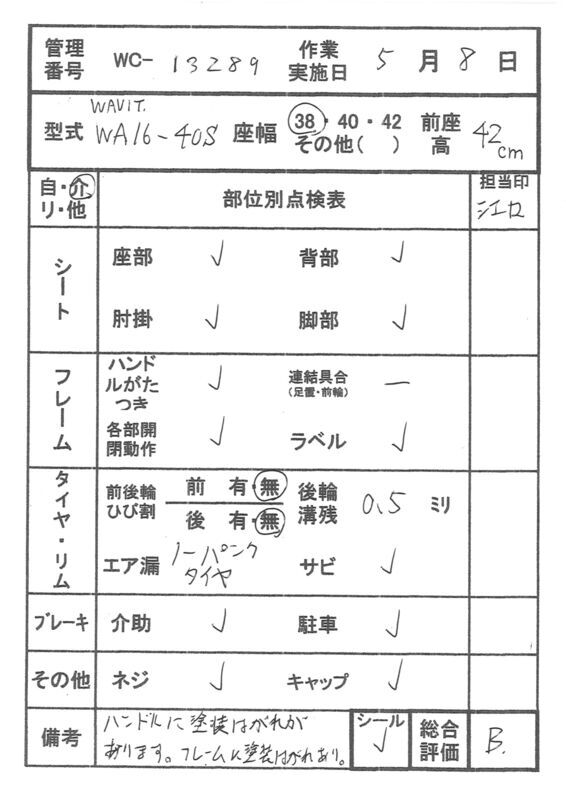 管理番号 WC- 13289 作業実施日 5 月 8 日
WAVIT.
型式 WA16-40S 座幅 38・40・42 その他( ) 前座高 42cm
自・介 リ・他 部位別点検表 担当印
江口
シート 座部 ✓ 背部 ✓
肘掛 ✓ 脚部 ✓
フレーム ハンドルがたつき ✓ 連結具合(足置・前輪) ―
各部開閉動作 ✓ ラベル ✓
タイヤ・リム 前後輪ひび割 前 有・無 後輪溝残 0.5 ミリ
後 有・無
エア漏 ノーパンクタイヤ サビ ✓
ブレーキ 介助 ✓ 駐車 ✓
その他 ネジ ✓ キャップ ✓
備考 ハンドルに塗装はがれが シール ✓ 総合評価 B.
あります。フレームに塗装はがれあり。